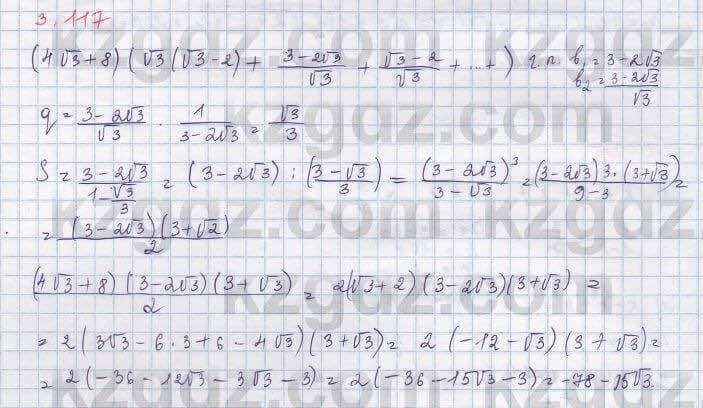 3.117
(4√3+8)(√3(√3-2)+ (3-2√3)/√3 + (√3-2)/√3 +...+) г.п. b₁=3-2√3
b₂=(3-2√3)/√3
q = (3-2√3)/√3 · 1/(3-2√3) = √3/3
S = (3-2√3)/(1-√3/3) = (3-2√3) : ((3-√3)/3) = (3-2√3)³/(3-√3) = (3-2√3)3·(3+√3)/(9-3) =
= (3-2√3)(3+√2)/2
(4√3+8)(3-2√3)(3+√3)/2 = 2(√3+2)(3-2√3)(3+√3) =
= 2(3√3-6·3+6-4√3)(3+√3) = 2(-12-√3)(3+√3) =
= 2(-36-12√3-3√3-3) = 2(-36-15√3-3) = -78-15√3.
kzgdz.com